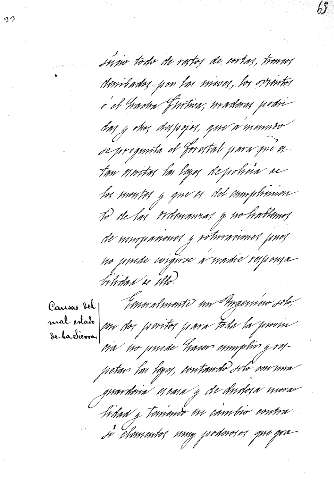 63
sino todo de restos de cortas, troncos
derribados por las nieves, los vientos
ó el hacha furtiva; maderas podri
das y otros despojos, que á menudo
se pregunta el forestal: para qué es
tan escritas las leyes de policía de
los montes y que es del cumplimien
to de las ordenanzas y no hablemos
de usurpaciones y roturaciones pues
no puede exigirse á nadie responsa
bilidad de ello
Causas del
mal estado
de la Sierra
Generalmente un Ingeniero solo
con dos peritos para toda la provin
cia no puede hacer cumplir y res
petar las leyes, contando solo con una
guardería escasa y de dudosa mora
lidad y teniendo en cambio contra
sí elementos muy poderosos que gra